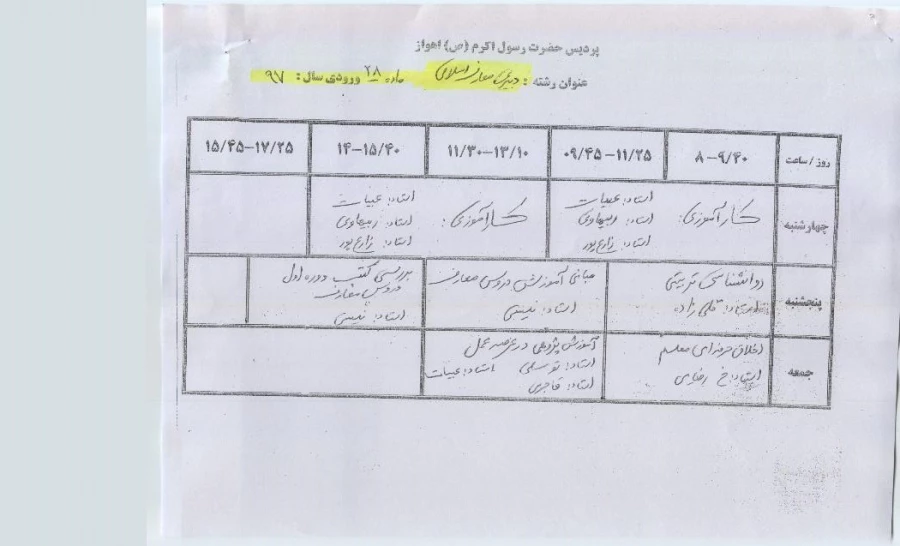 پردیس حضرت رسول اکرم (ص) اهواز
عنوان رشته : دبیری معارف اسلامی ماده ۲۸ ورودی سال : ۹۷
روز / ساعت ۸-۹/۴۰ ۰۹/۴۵-۱۱/۲۵ ۱۱/۳۰-۱۳/۱۰ ۱۴-۱۵/۴۰ ۱۵/۴۵-۱۷/۲۵
چهارشنبه
کارآموزی :
استاد: عبیات
استاد: ربیعاوی
استاد: زارع پور
کارآموزی :
استاد: عبیات
استاد: ربیعاوی
استاد: زارع پور
پنجشنبه
روانشناسی تربیتی
استاد: قلی زاده
مبانی آموزش دروس معارف
استاد: نیسی
بررسی کتب دوره اول
دروس معارف
استاد: نیسی
جمعه
اخلاق حرفه ای معلم
استاد: خ رضایی
آموزش پژوهی در عرصه عمل
استاد: توسلی استاد: عبیات
استاد: